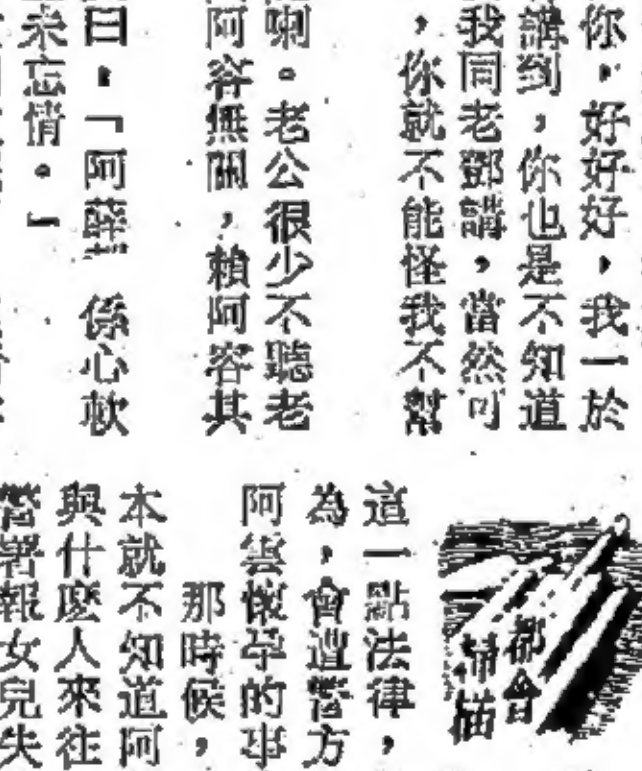 你,好好好,我一於
講到,你也是不知道
我同老鄧講,當然可
,你就不能怪我不幫
喇。老公很少不聽老
阿容無關,賴阿容其
曰:「阿薛 係心軟
未忘情。」
都會
這一點法律,
為,會遭警方
阿雲懷孕的事
那時候,
本就不知道阿
與什麼人來往
警署報女兒失